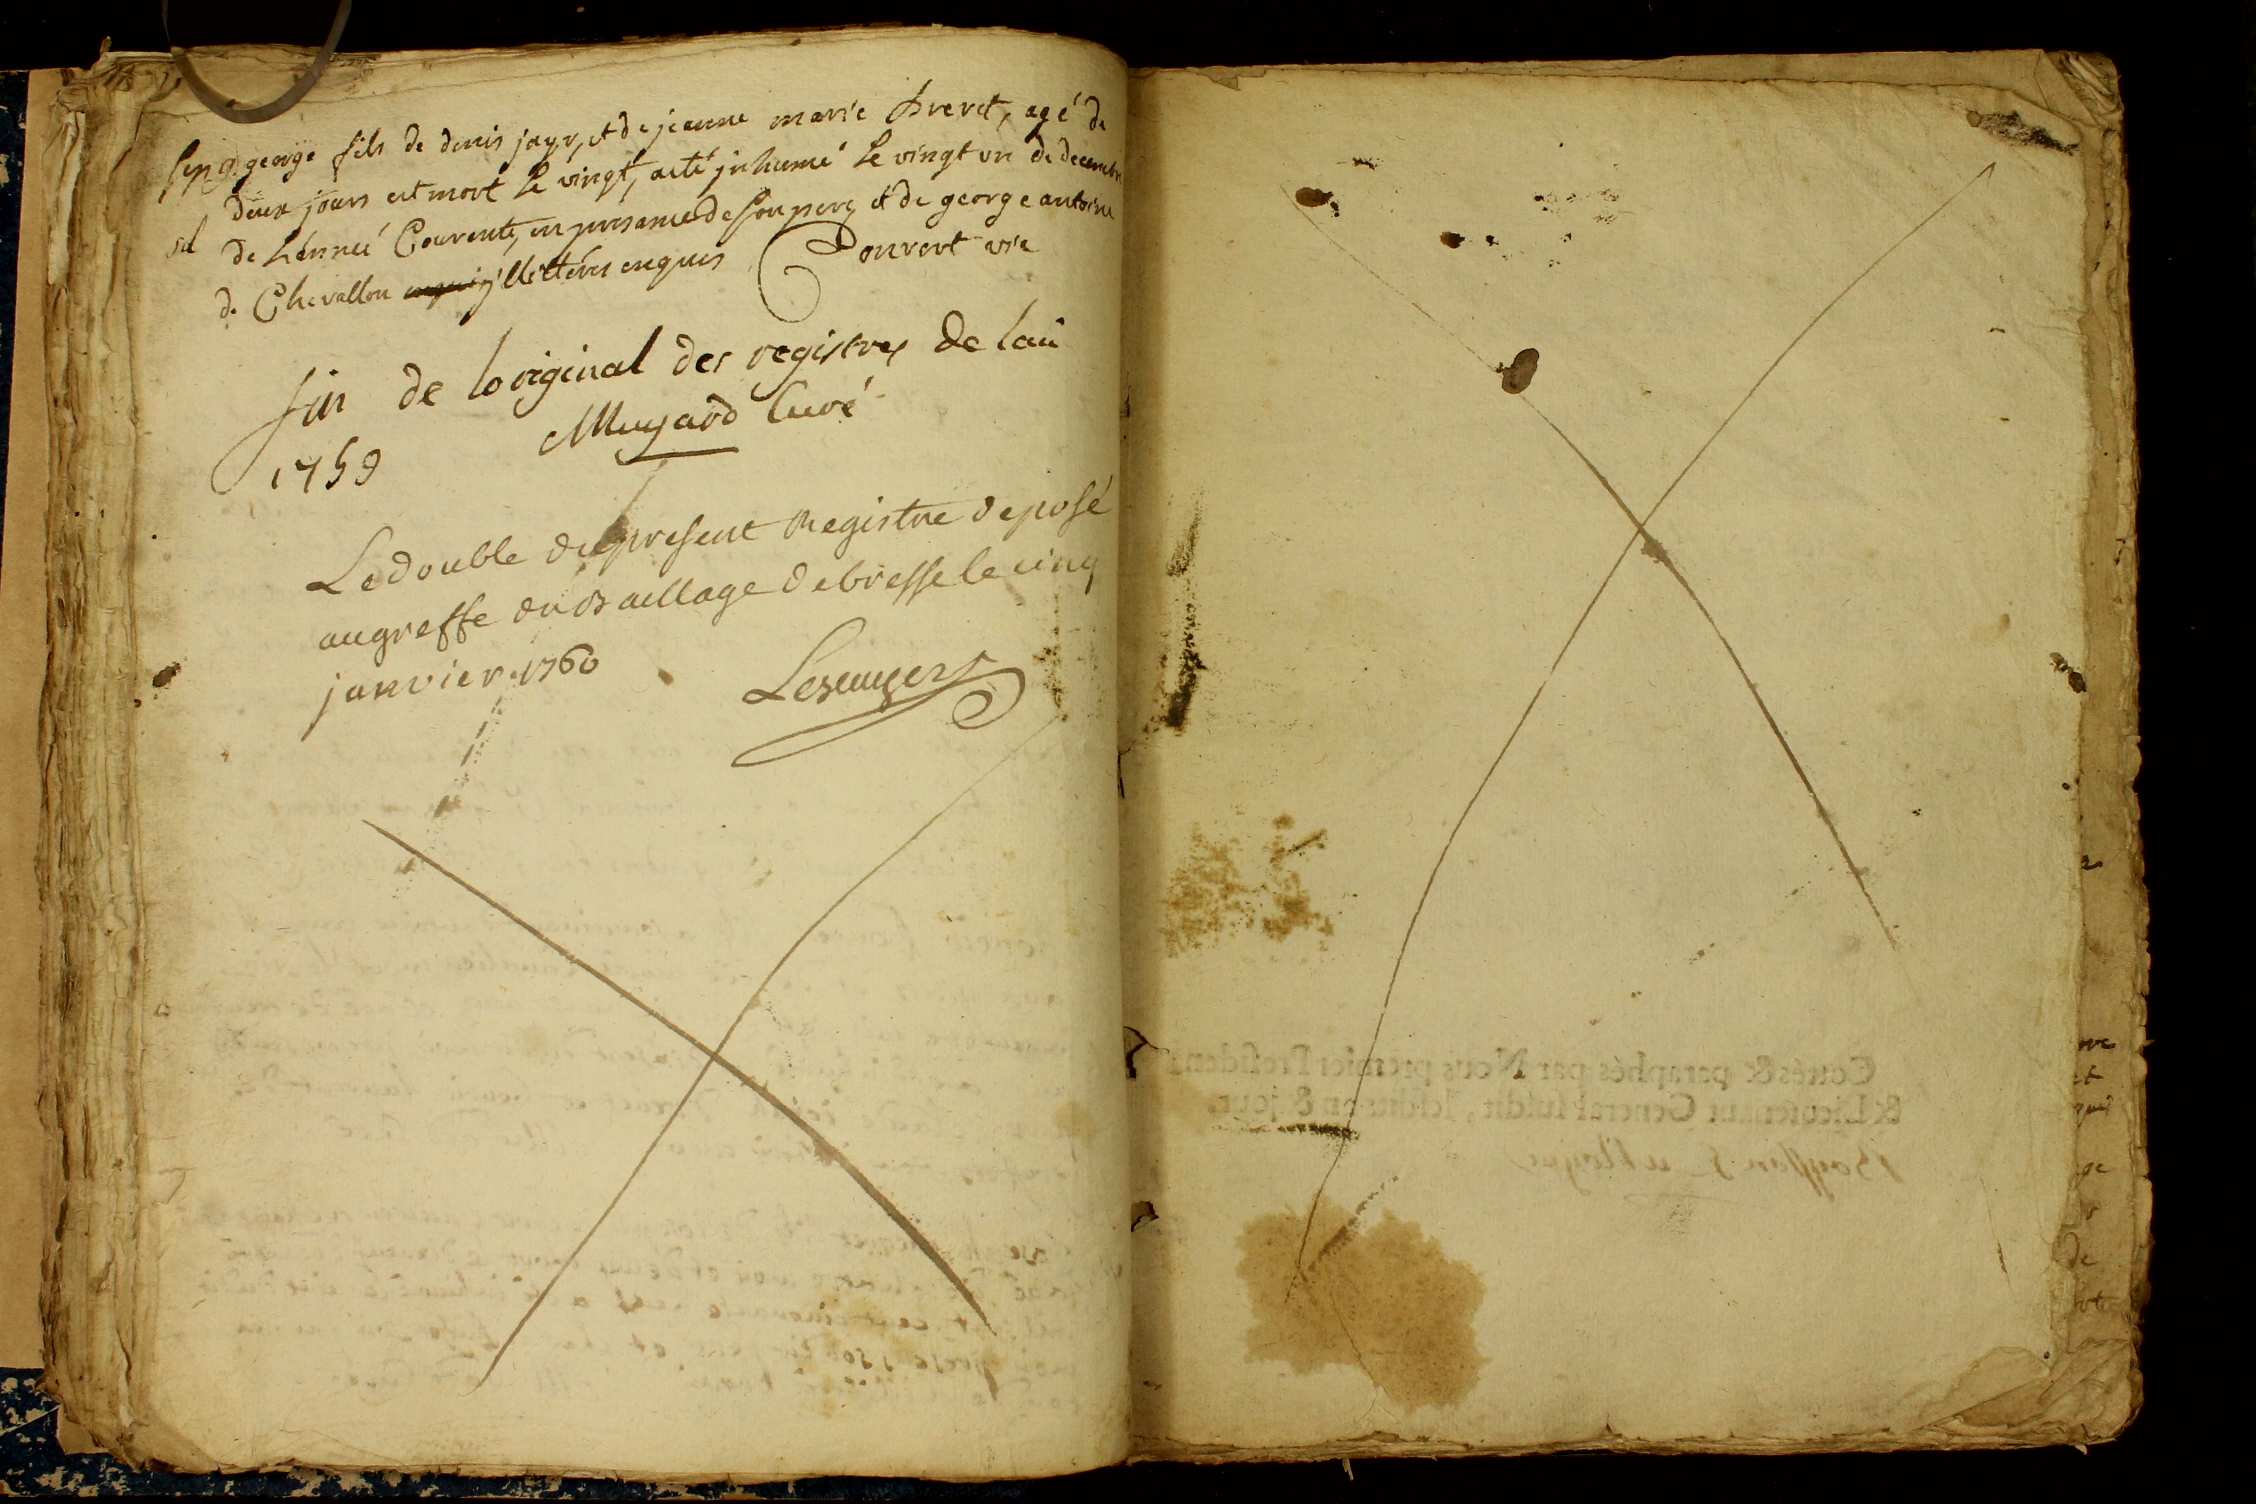 Sep. george fils de denis jayr, et de jeanne marie Brevet, agé de
deux jours est mort le vingt, a eté jnhumé le vingt un de decembre
de L'année Courente, en presance de son pere et de george antoine
de Chevallon jllétterés enquis Convert vic
fin de loriginal des registres de lan
1759 Muyard Curé
Le double du present Registre deposé
au greffe du Baillage de bresse le cinq
janvier 1760
Cottés & paraphés par Nous premier President
& Lieutenant General susdit, lesdits an & jour.